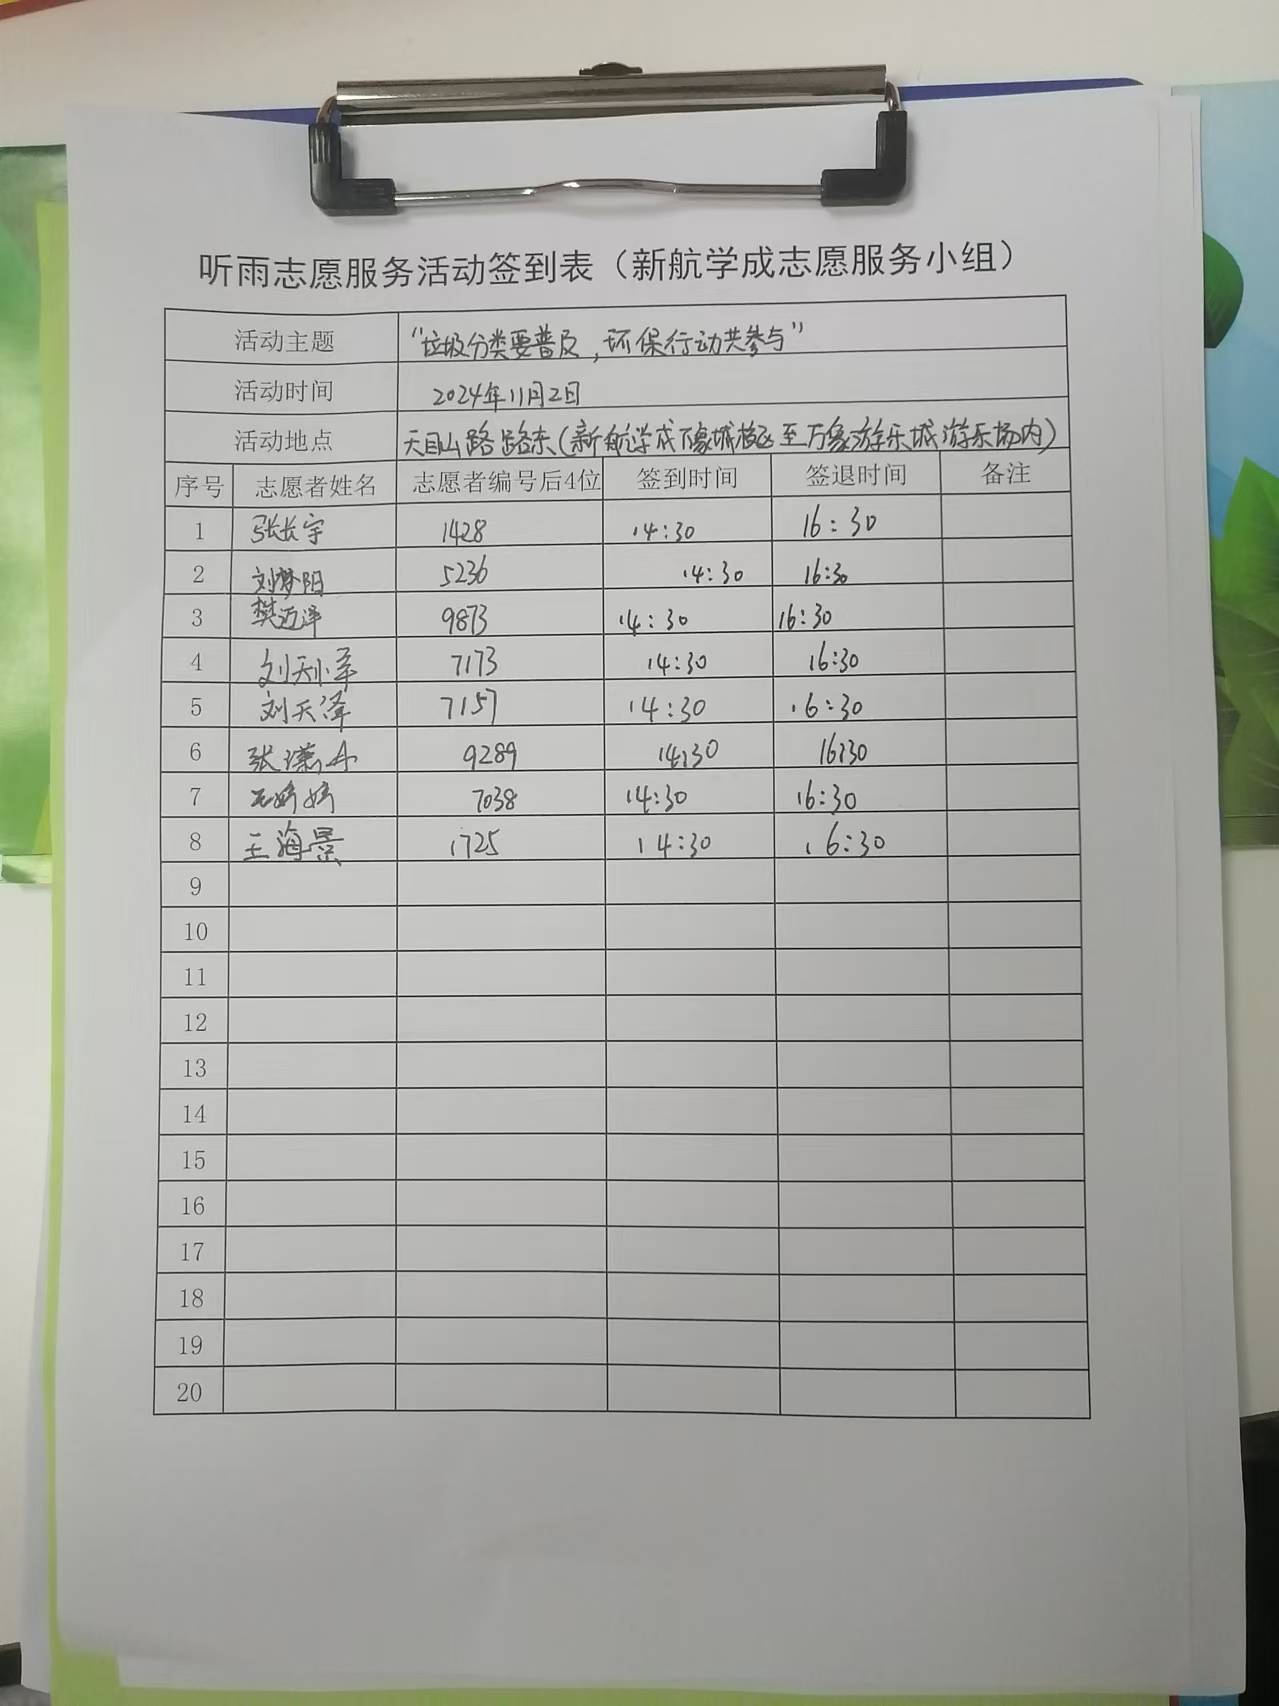 听雨志愿服务活动签到表（新航学成志愿服务小组）
活动主题 "垃圾分类要普及，环保行动共参与"
活动时间 2024年11月2日
活动地点 天目山路路东(新航学成万象城校区至万象游乐城游乐场内)
序号 志愿者姓名 志愿者编号后4位 签到时间 签退时间 备注
1 张长宇 1428 14:30 16:30
2 刘梦阳 5236 14:30 16:30
3 樊迈泽 9873 14:30 16:30
4 7173 14:30 16:30
5 刘天泽 7157 14:30 16:30
6 9289 14:30 16:30
7 王婷婷 7038 14:30 16:30
8 王海景 1725 14:30 16:30
9
10
11
12
13
14
15
16
17
18
19
20